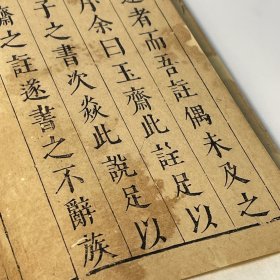 者而吾註偶未及之
余曰玉齋此註足以
子之書次焱此說足以
齋之註遂書之不辭族